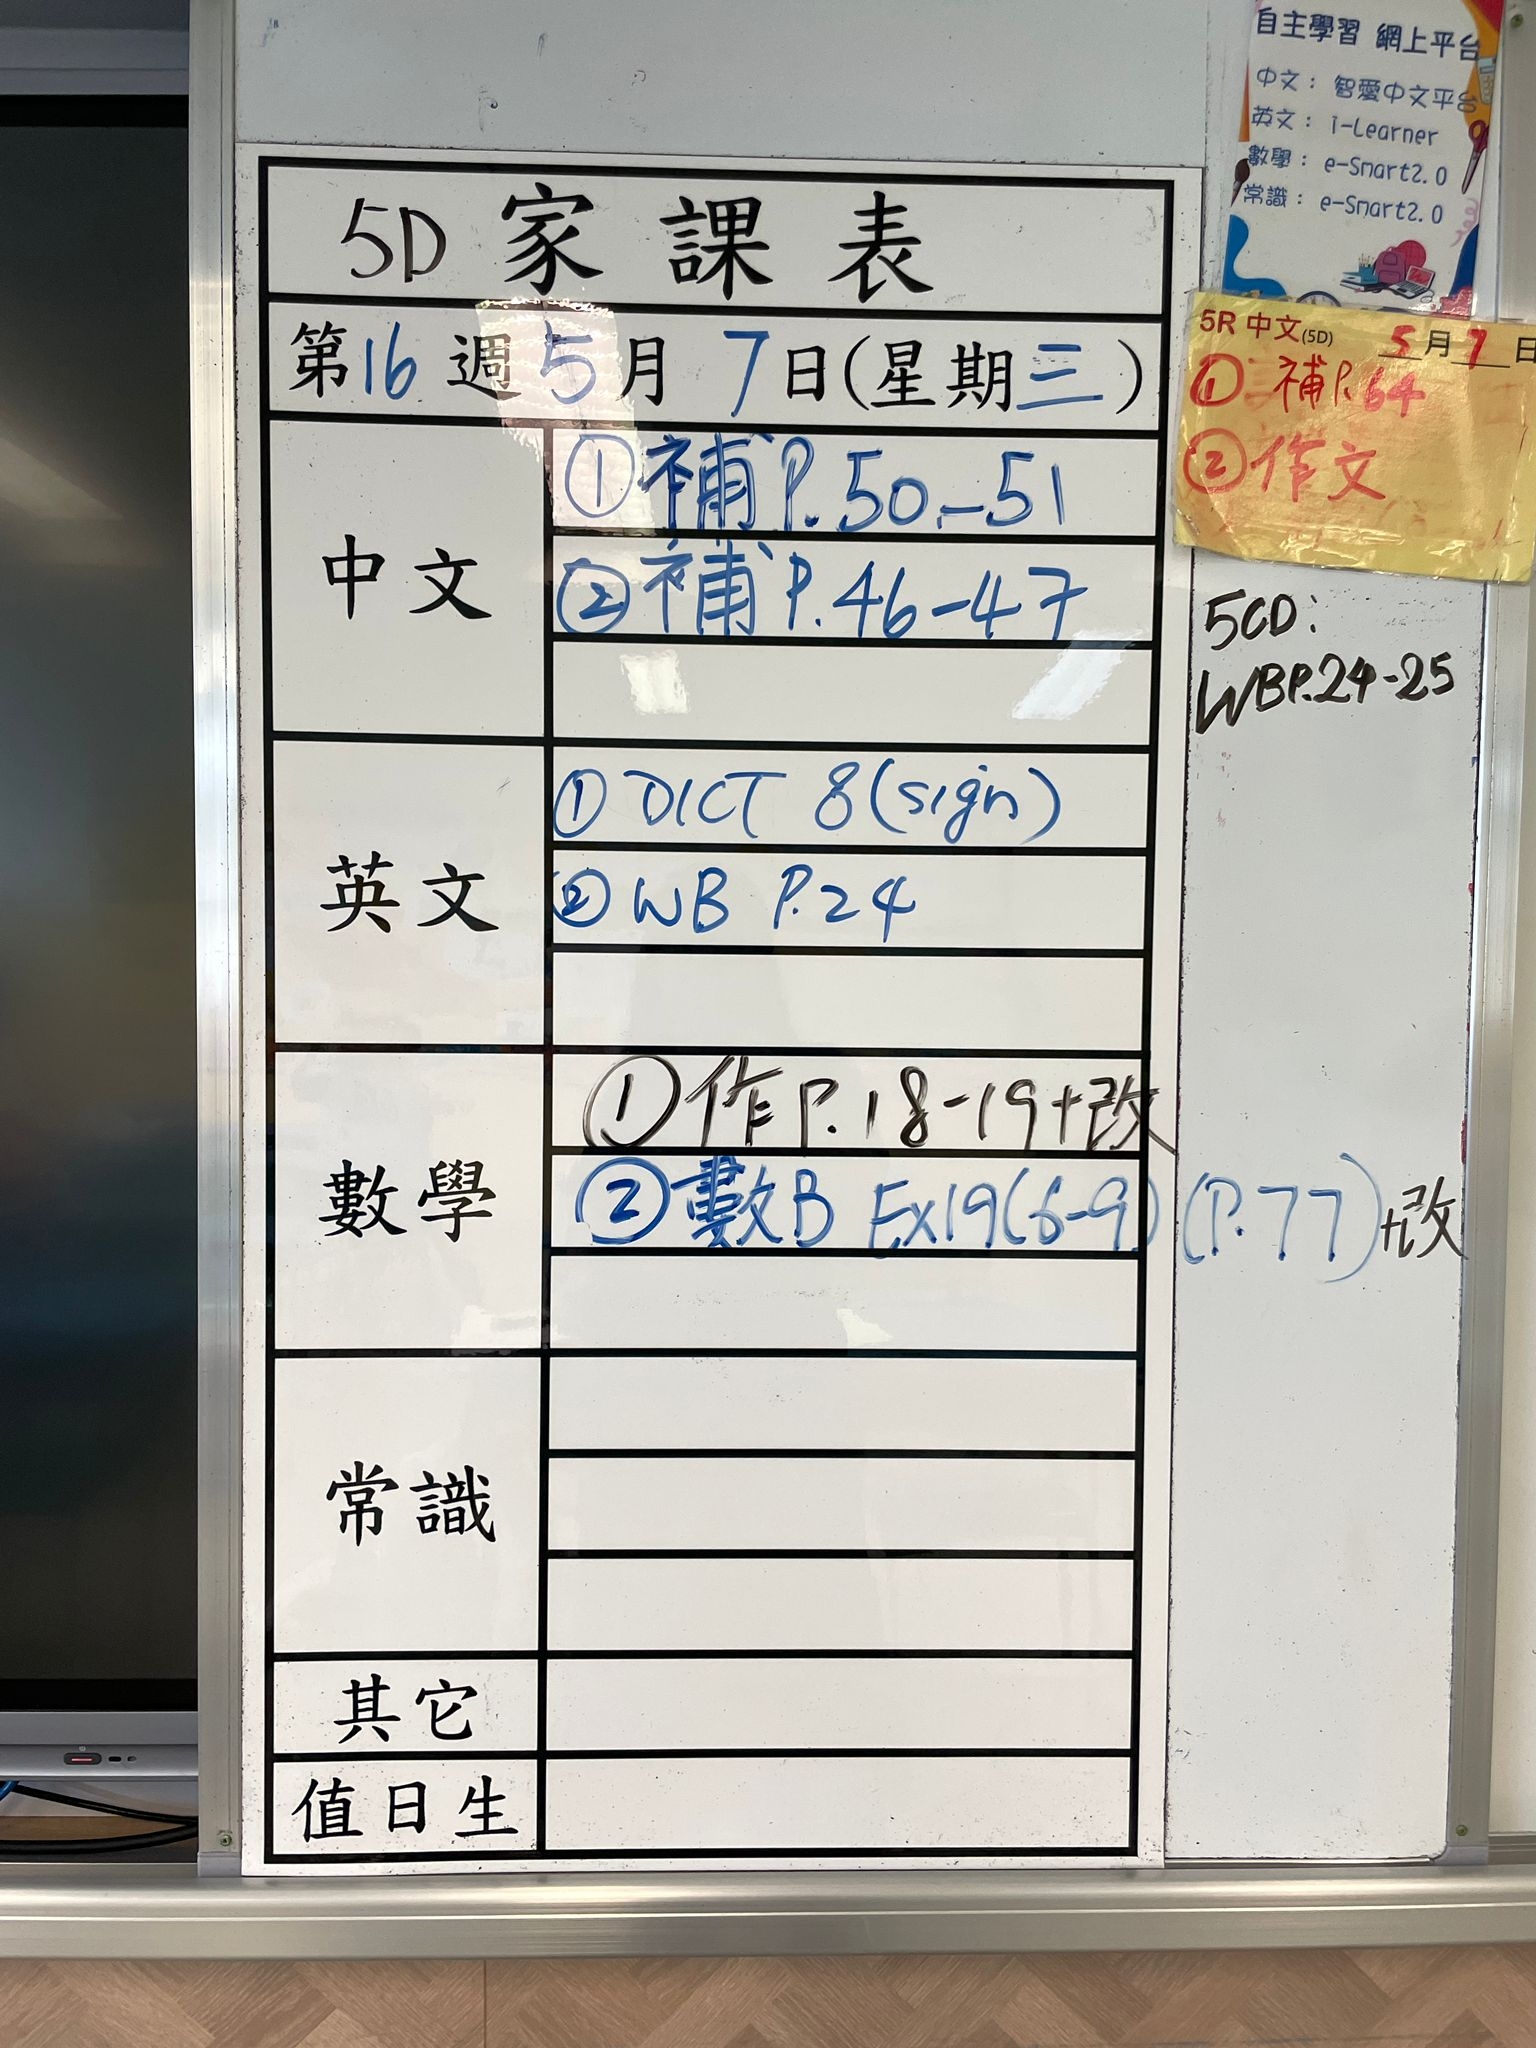 自主學習 網上平台
中文： 智愛中文平台
英文： i-Learner
數學： e-Smart2.0
常識： e-Smart2.0
5D 家課表
第16週 5月 7日(星期三)
中文
①補P.50-51
②補P.46-47
英文
①DICT 8(sign)
②WB P.24
數學
①作P.18-19+改
②數B Ex19(6-9) (P.77)+改
常識
其它
值日生
5R 中文(5D) 5月7日
①補P.64
②作文
5CD:
WBP.24-25